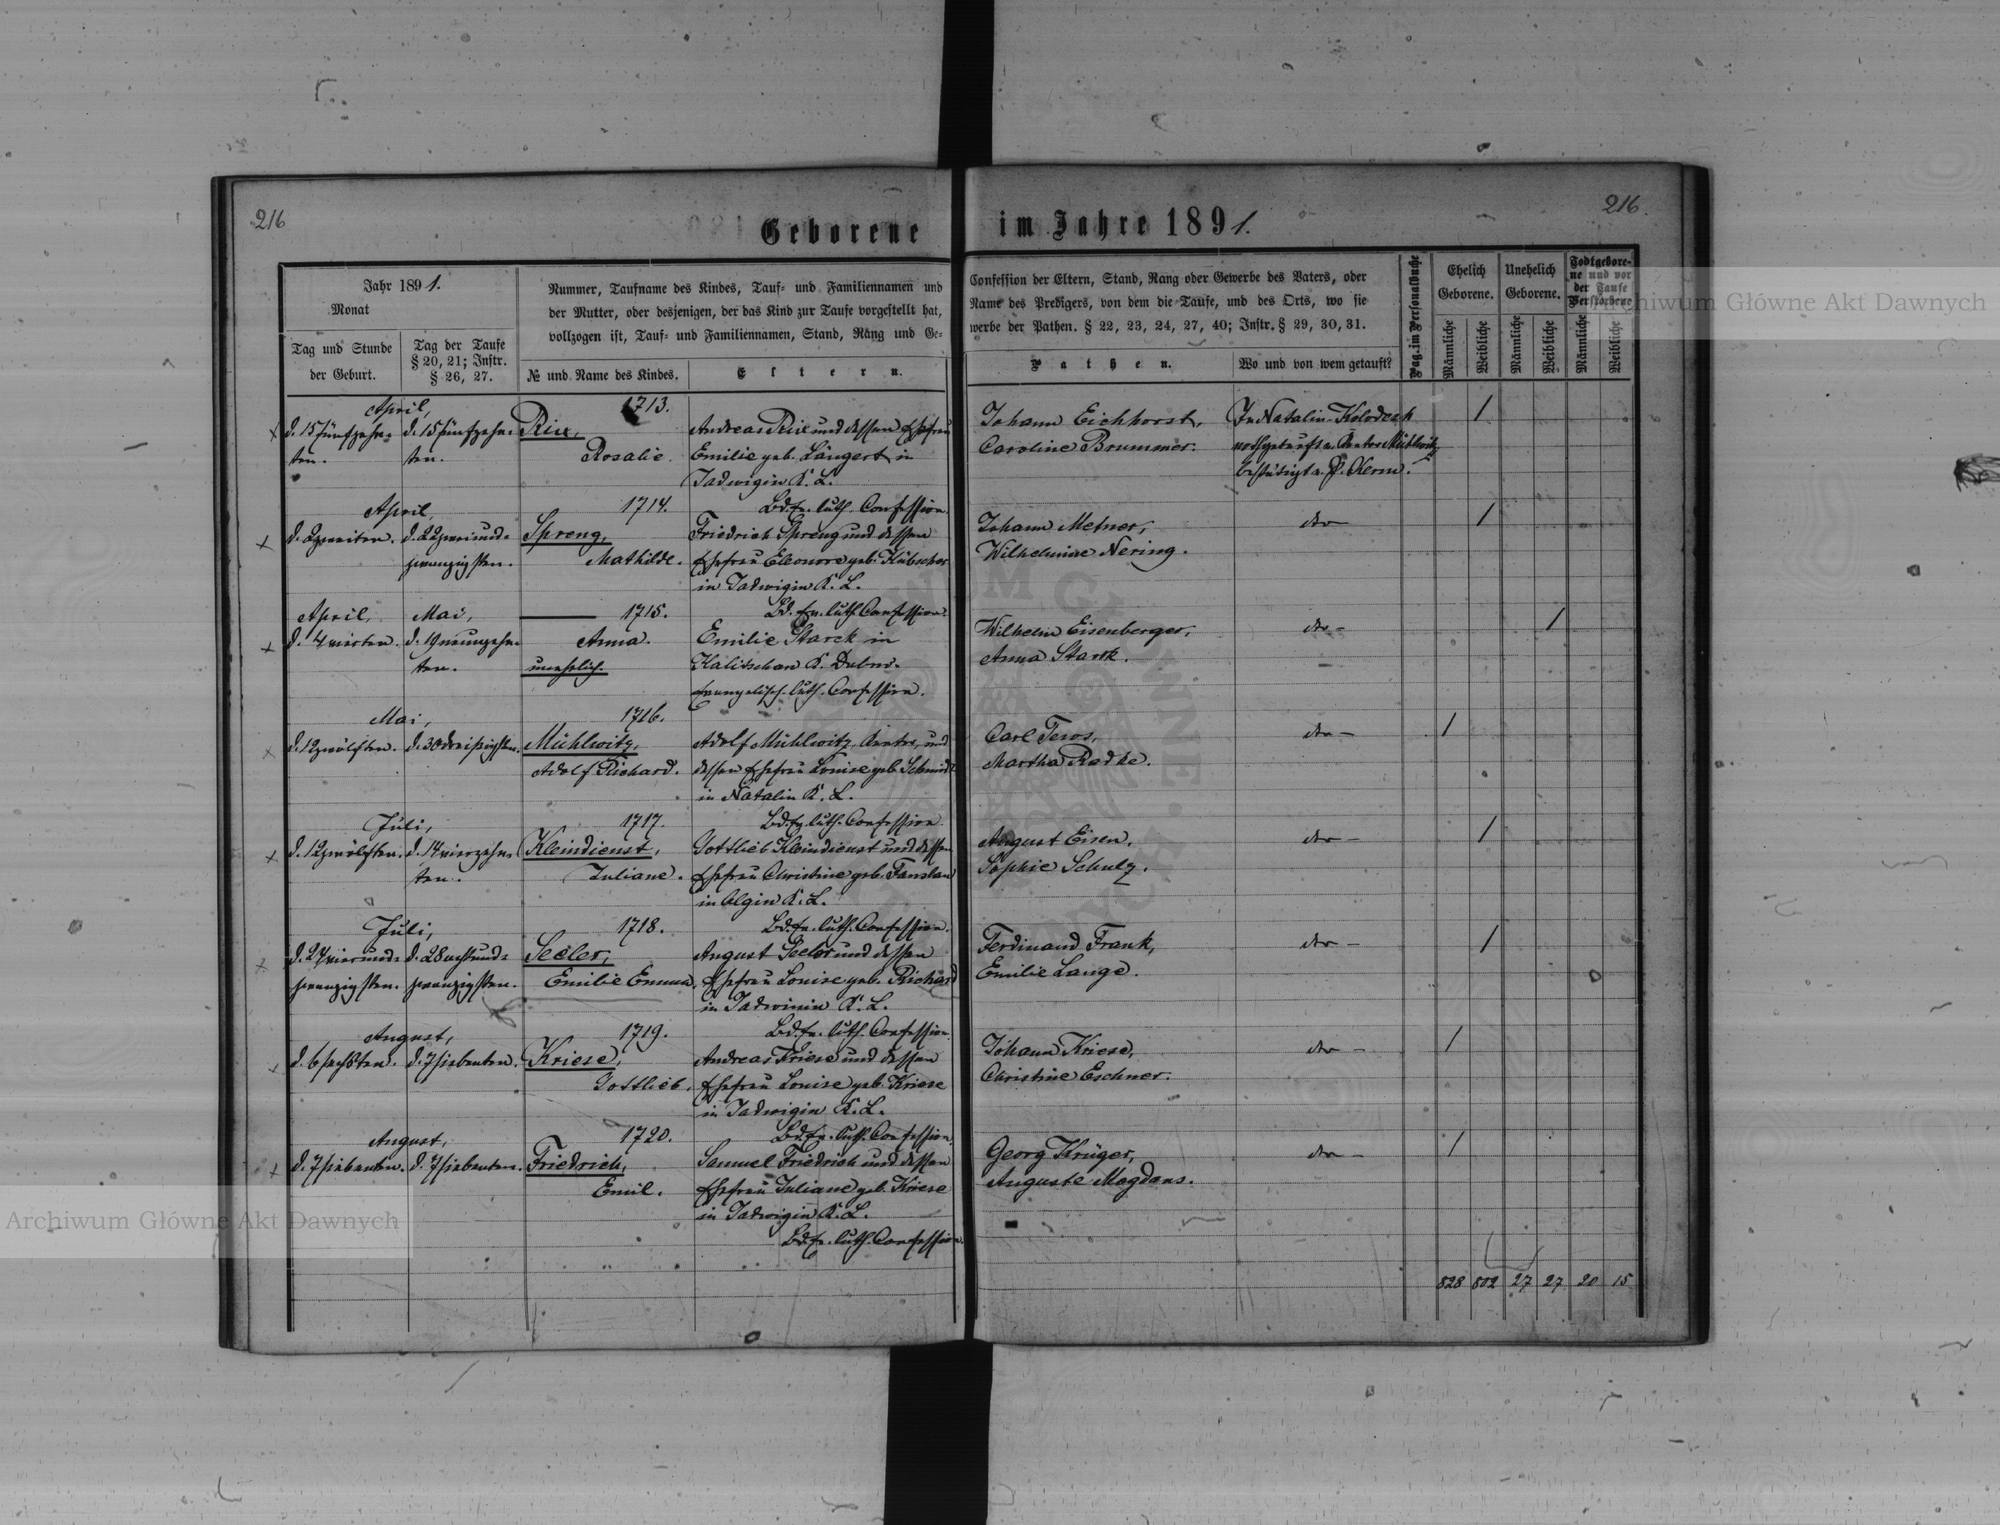 216
Geborene
Jahr 1891.
Monat
Tag und Stunde
der Geburt.
Tag der Taufe
§ 20, 21; Instr.
§ 26, 27.
Nummer, Taufname des Kindes, Tauf- und Familiennamen und
der Mutter, oder desjenigen, der das Kind zur Taufe vorgestellt hat,
vollzogen ist, Tauf- und Familiennamen, Stand, Rang und Ge-
№ und Name des Kindes.
Eltern.
April,
d. 15 fünfzehn-
ten.
d. 15 fünfzehn-
ten.
1713.
Rosalie
Andreas und dessen Ehefrau
Emilie geb. Längert in
Jadwigin K. L.
Bd. Ev. luth. Confession.
April,
d. 2 zweiten.
d. 22 zweiund-
zwanzigsten.
1714.
Spreng,
Mathilde.
Friedrich Spreng und dessen
Ehefrau Eleonore geb. Hübscher
in Jadwigin K. L.
Bd. Ev. luth. Confession.
April,
d. 4 vierten.
Mai,
d. 19 neunzehn-
ten.
1715.
Anna.
unehelich.
Emilie Starck in
K. Dubno.
Evangelisch-luth. Confession.
Mai,
d. 12 zwölften.
d. 30 dreißigsten.
1716.
Mühlwitz,
Adolf Richard.
Adolf Mühlwitz, Kantor, und
dessen Ehefrau Louise geb. Schmidt
in Natalin K. L.
Bd. Ev. luth. Confession.
Juli,
d. 12 zwölften.
d. 14 vierzehn-
ten.
1717.
Kleindienst,
Juliane.
Gottlieb Kleindienst und dessen
Ehefrau Christine geb. Fanslau
in Olgin K. L.
Bd. Ev. luth. Confession.
Juli,
d. 24 vierund-
zwanzigsten.
d. 28 achtund-
zwanzigsten.
1718.
Seeler,
Emilie Emma.
August Seeler und dessen
Ehefrau Louise geb. Richard
in Jadwinin K. L.
Bd. Ev. luth. Confession.
August,
d. 6 sechsten.
d. 7 siebenten.
1719.
Kriese,
Gottlieb.
Andreas Kriese und dessen
Ehefrau Louise geb. Kriese
in Jadwigin K. L.
Bd. Ev. luth. Confession.
August,
d. 7 siebenten.
d. 7 siebenten.
1720.
Friedrich,
Emil.
Samuel Friedrich und dessen
Ehefrau Juliane geb. Kriese
in Jadwigin K. L.
Bd. Ev. luth. Confession.
216.
im Jahre 1891.
Confession der Eltern, Stand, Rang oder Gewerbe des Vaters, oder
Name des Predigers, von dem die Taufe, und des Orts, wo sie
werbe der Pathen. § 22, 23, 24, 27, 40; Instr. § 29, 30, 31.
Pathen.
Wo und von wem getauft?
Pag. im Personalbuche
Ehelich
Geborene.
Unehelich
Geborene.
Todtgebore-
ne und vor
der Taufe
Verstorbene
Männliche
Weibliche
Männliche
Weibliche
Männliche
Weibliche
Johann Eichhorst,
Caroline Brummer.
In Natalin-Kolodesh
nothgetauft v. Kantor Mühlwitz
bestätigt v. P. Kerm.
1
Johann Metner,
Wilhelmine Nering.
dto —
1
Wilhelm Eisenberger,
Anna Stark.
dto —
1
Carl Teros,
Martha Radke.
dto —
1
August Eisen,
Sophie Schulz.
dto —
1
Ferdinand Frank,
Emilie Lange.
dto —
1
Johann Kriese,
Christine Eschner.
dto —
1
Georg Krüger,
Auguste Magdans.
dto —
1
828 802 27 27 20 15
Archiwum Główne Akt Dawnych
Archiwum Główne Akt Dawnych